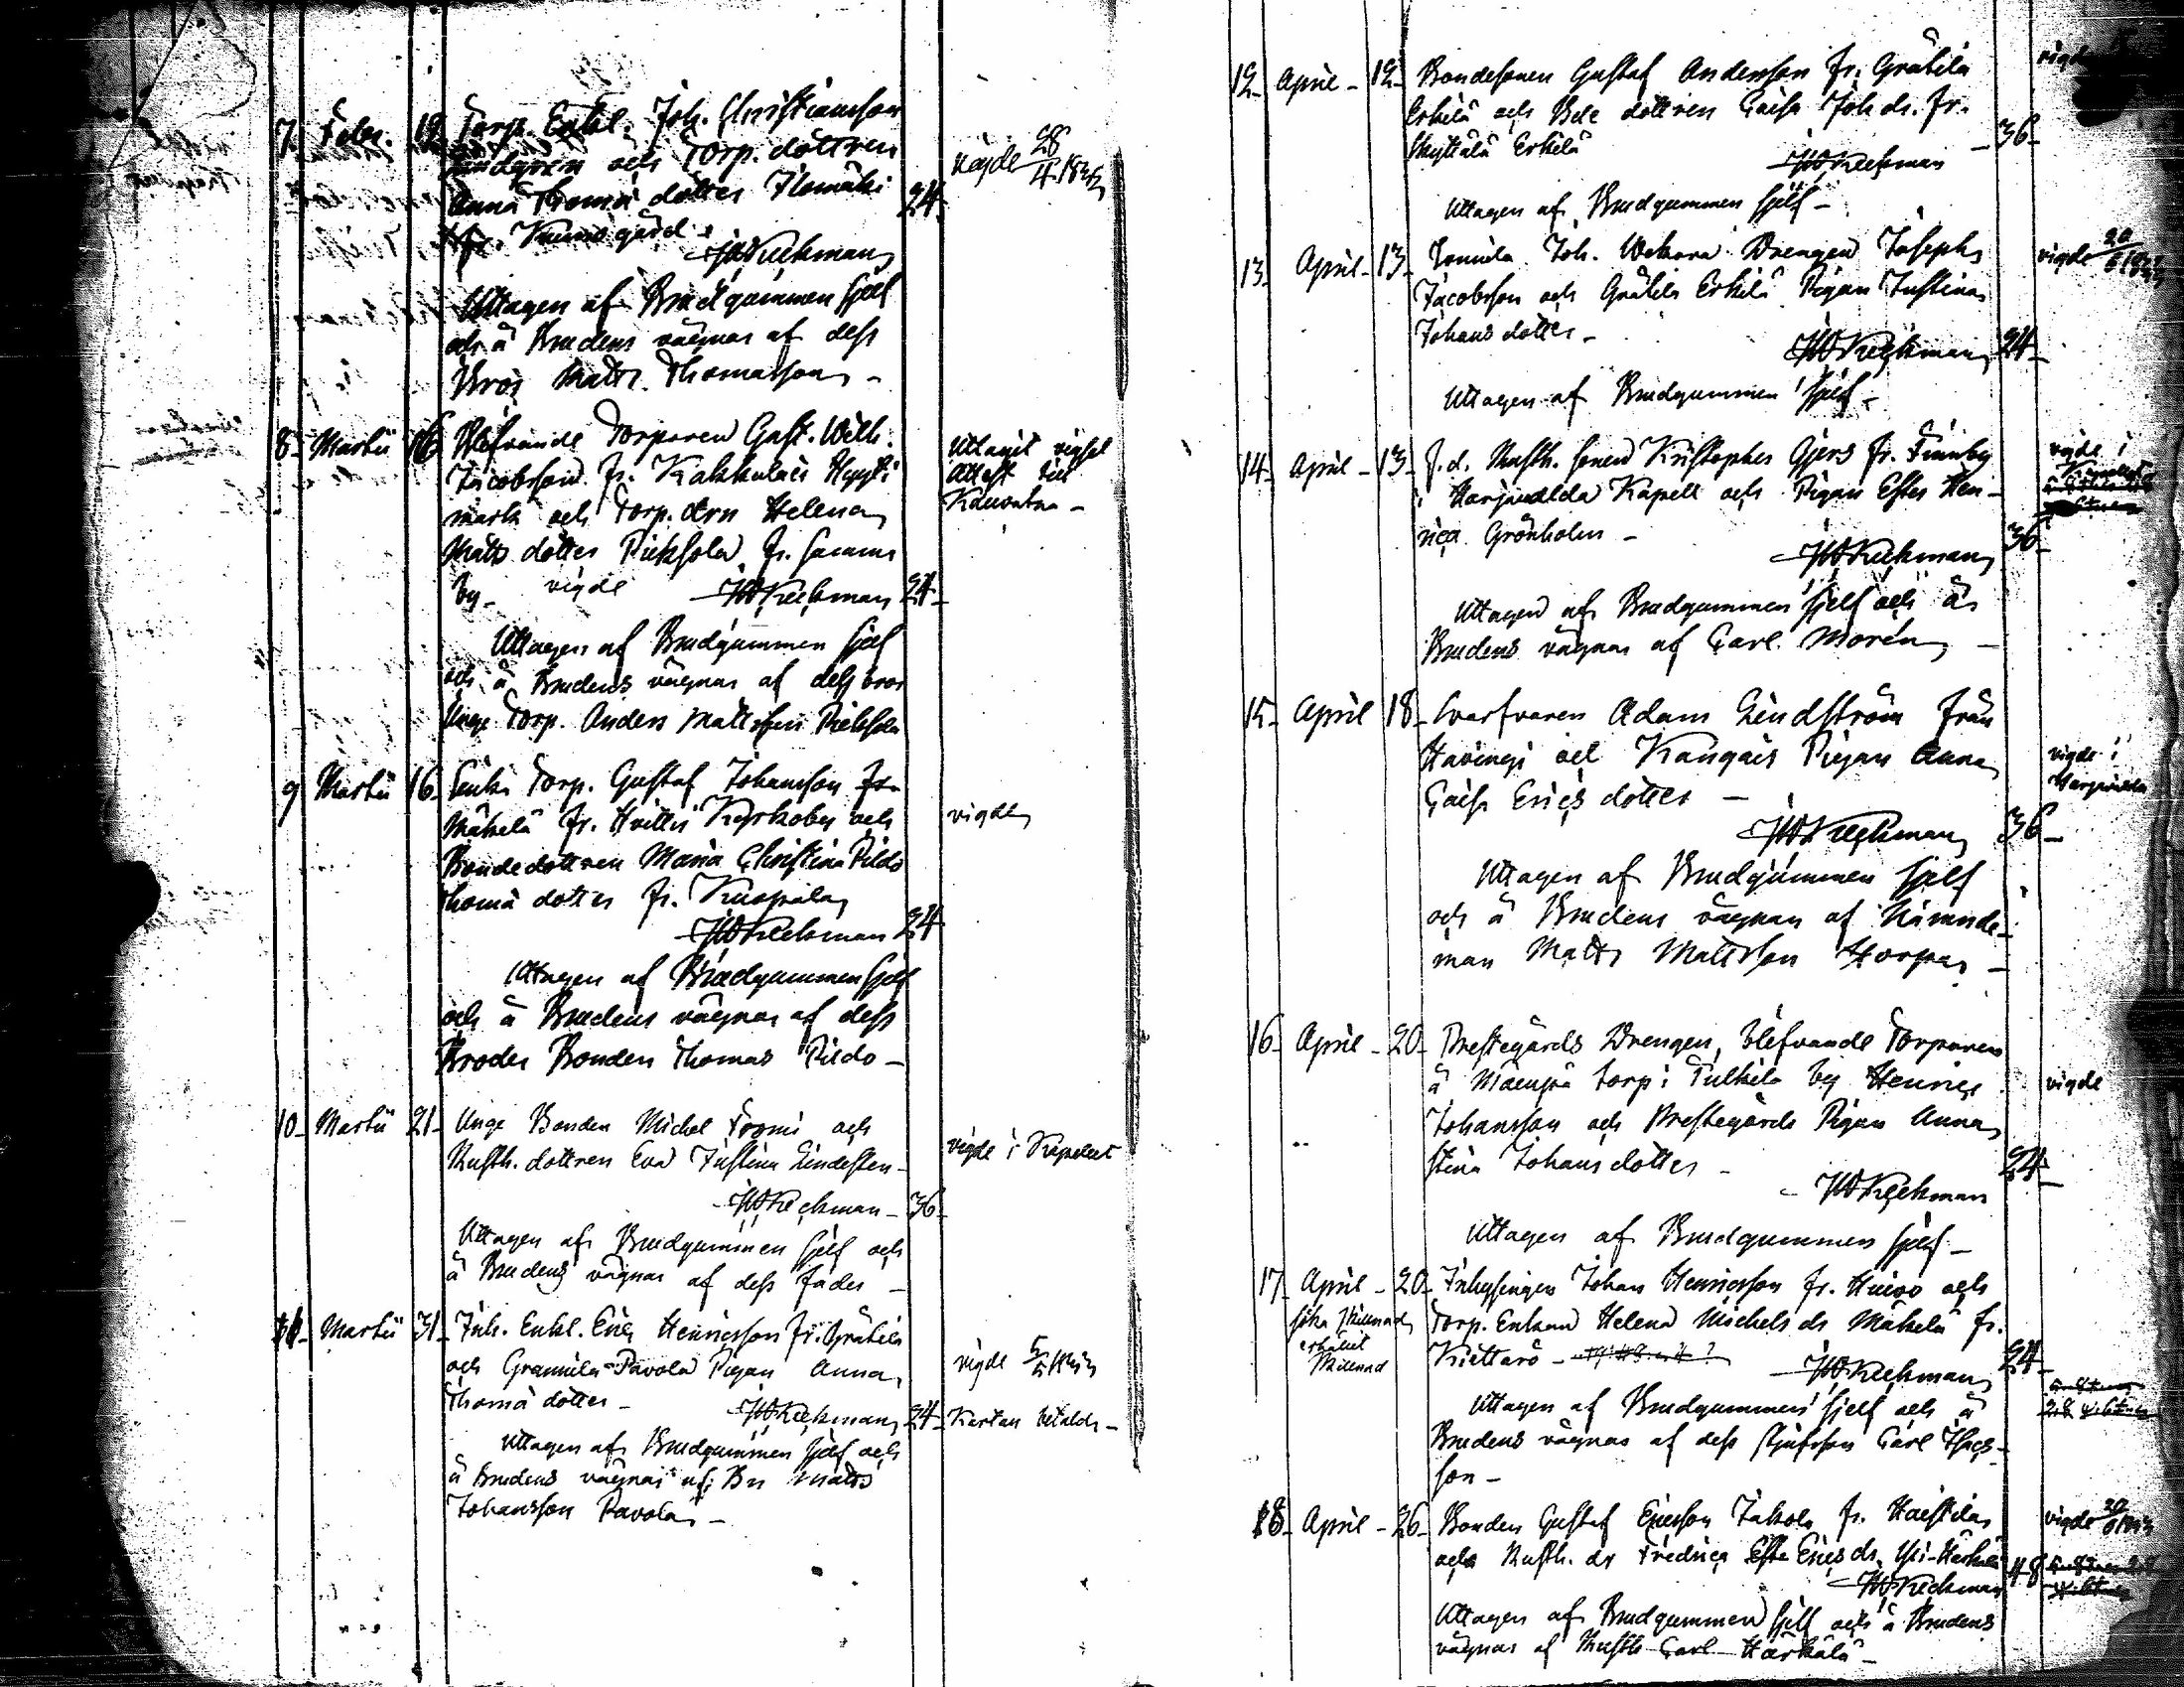 7. Febr. 19 Torp. Enkl. Joh. Christiansson
Lindgren och Torp. dottren
Anna Thomä dotter Ilomäki 24
fr. Kumogård. vigde 28/4 1842
JWKeckman
Uttagen af Brudgummen sjelf
och å Brudens vägnar af dess
Bror Matts Thomasson -
8. Martii 16 Blifvande Torparen Gust. Wilh.
Jacobsson fr. Kakkulais Hyyti
mark och Torp. drn Helena
Matts dotter Piekkola fr. samma
by - vigde JWKeckman 24
Uttagit vigsel
Attest till
Kauvatsa -
Uttagen af Brudgummen sjelf
och å Brudens vägnar af dess bror
Unge Torp. Anders Mattsson Piekkola
9 Martii 16 Enkl. Torp. Gustaf Johansson fr.
Mäkelä fr. Hvittis Kyrkoby och vigde
Bondedottren Maria Christina Pildo
Thomä dotter fr. Kuoppala
JWKeckman 24
Uttagen af Brudgummen sjelf
och å Brudens vägnar af dess
Broder Bonden Thomas Pildo -
10. Martii 21 Unge Bonden Michel Tromi och
Rusth. dottren Eva Justina Lindesten - vigde i Kapellet
JWKeckman - 36
Uttagen af Brudgummen sjelf och
å Brudens vägnar af dess fader -
11. Martii 31 Inh. Enkl. Eric Henricsson fr. Gråtila
och Grannila - Pavola Pigan Anna vigde 5/5 1842
Thomä dotter - JWKeckman 24 Kartan betald -
Uttagen af Brudgummen sjelf och
å Brudens vägnar af Bn Matts
Johansson Pavola -
12. April - 12 Bondesonen Gustaf Andersson fr. Gråtila vigde
Erkilä och Bde dottren Caisa Joh. dr. fr.
Skyttälä Erkilä - 36
JWKeckman
Uttagen af Brudgummen sjelf -
13. April - 13 Joh. Drengen Joseph vigde
Jacobsson och Gråtila Erkilä Pigan Justina
Johans dotter -
JWKeckman 24
Uttagen af Brudgummen sjelf -
14. April - 13 f.d. Rusth. sonen Kristopher Gjers fr. Finnby vigde i
i Harjavalda Kapell och Pigan Ester Hen- Kapellet
rica Grönholm - 36
JWKeckman
Uttagen af Brudgummen sjelf och å
Brudens vägnar af Carl Morén -
15. April 18. Svarfvaren Adam Lindström från
Havingi och Kangais Pigan Anna vigde i
Caisa Erics dotter - Harjavalda
JWKeckman 36 -
Uttagen af Brudgummen sjelf
och å Brudens vägnar af Nämnde-
man Matts Mattsson Horpa -
16. April - 20. Prestegårds Drengen, blifvande Torparen
å Mäenpä torp i Tulkila by Henric vigde
Johansson och Prestegårds Pigan Anna
Stina Johans dotter - 24
JWKeckman
Uttagen af Brudgummen sjelf -
17. April - 20. Inhysingen Johan Henricsson fr. Huivo och
Torp. Enkan Helena Michels dr Mäkelä fr.
Kiettarö - JWKeckman 24
Uttagen af Brudgummen sjelf och å
Brudens vägnar af dess Carl Isacs-
son -
18. April - 26. Bonden Gustaf Ericsson Jakola fr. Haistila vigde
och Rusth. dr Fredrica Erics dr Yli-Härkälä
JWKeckman 48
Uttagen af Brudgummen sjelf och å Brudens
vägnar af Rusth. Carl Härkälä -